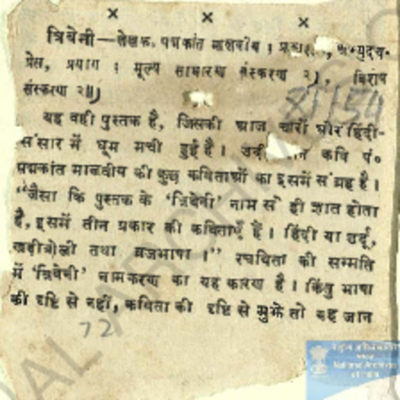 × × ×
त्रिवेनी—लेखक, पद्मकांत मालवीय; प्रकाशक, अभ्युदय-
प्रेस, प्रयाग; मूल्य साधारण संस्करण २), विशेष
संस्करण २॥)
यह वही पुस्तक है, जिसकी आज चारों ओर हिंदी-
संसार में धूम मची हुई है। कवि पं०
पद्मकांत मालवीय की कुछ कविताओं का इसमें संग्रह है।
“जैसा कि पुस्तक के ‘त्रिवेनी’ नाम से ही ज्ञात होता
है, इसमें तीन प्रकार की कविताएँ हैं। हिंदी या उर्दू,
खड़ीबोली तथा ब्रजभाषा।” रचयिता की सम्मति
में ‘त्रिवेनी’ नामकरण का यह कारण है। किंतु भाषा
की दृष्टि से नहीं, कविता की दृष्टि से मुझे तो यह जान
72